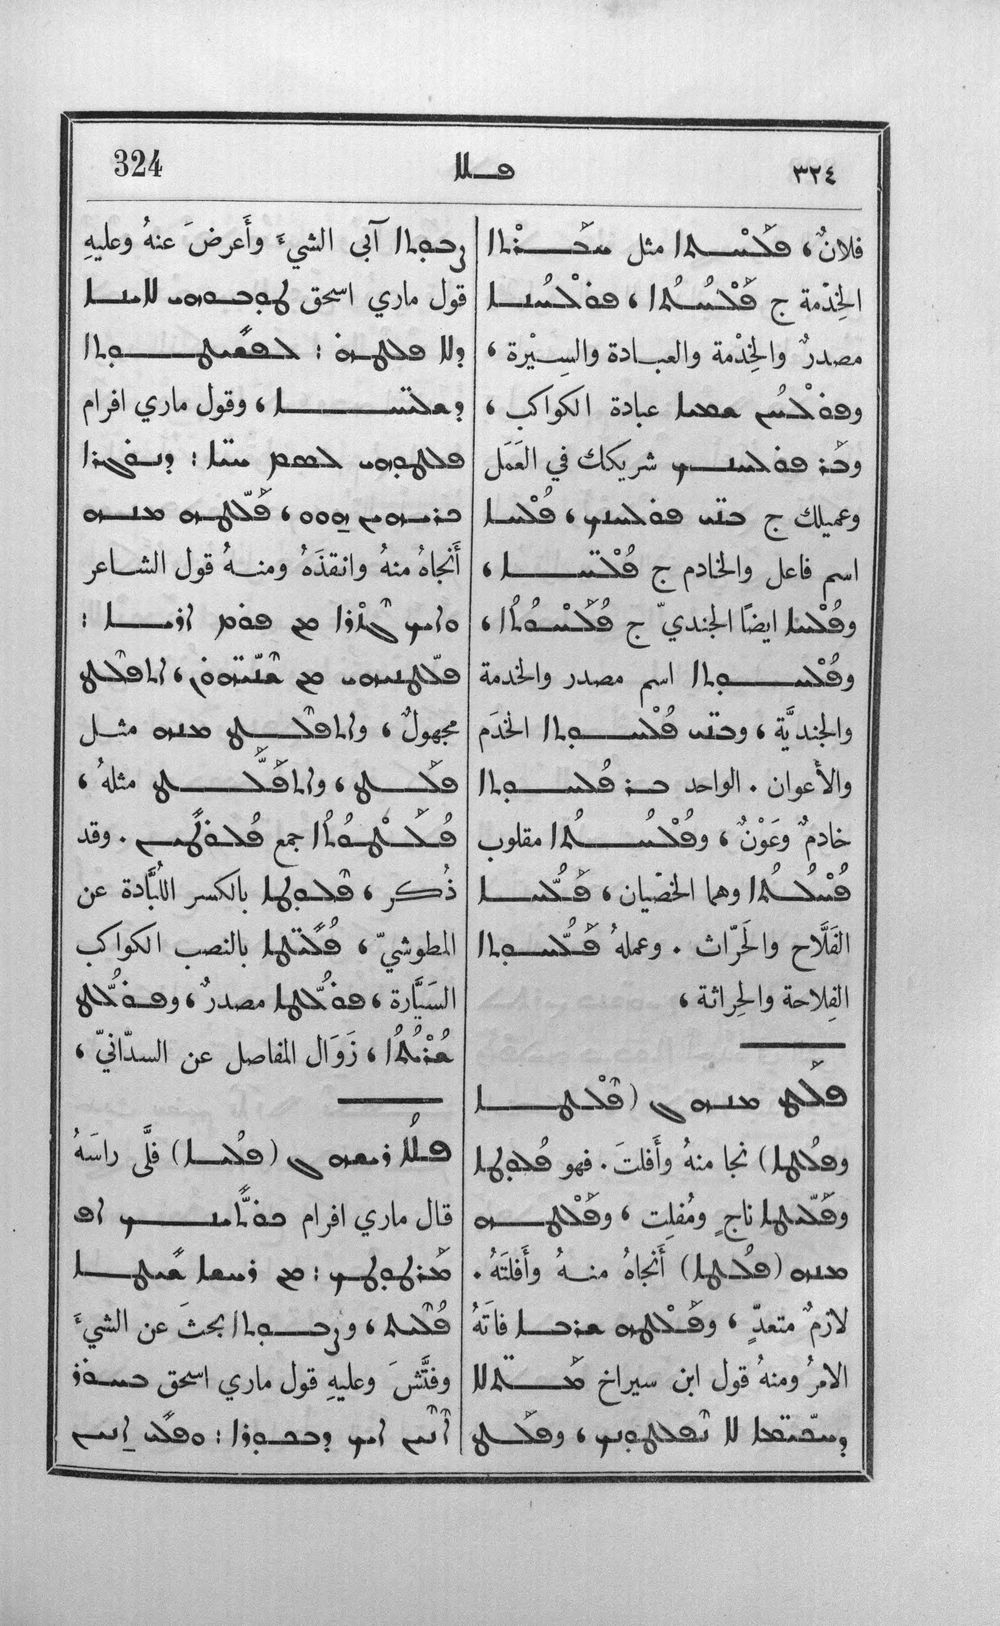 324
ܦܠܐ
٣٢٤
فلانٌ، ܦܠܚܬܐ مثل ܚܒܪܬܐ
الخِدْمة ج ܦܠܚܬܐ، ܦܘܠܚܢܐ
مصدرٌ والخِدْمة والعبادة والسِيْرة،
ܘܦܘܠܚܢ ܫܡܫܐ عبادة الكواكب،
ܘܒܪ ܦܘܠܚܢܟ شريكك في العَمَل
وعميلك ج ܒܢܝ ܦܘܠܚܢܟ، ܦܠܚܐ
اسم فاعل والخادم ج ܦܠܚܐ،
ܘܦܠܚܐ ايضًا الجنديّ ج ܦܠܚܘܬܐ،
ܘܦܠܚܘܬܐ اسم مصدر والخدمة
والجنديَّة، ܘܒܢܝ ܦܠܚܘܬܐ الخدَم
والأعوان . الواحد ܒܪ ܦܠܚܘܬܐ
خادمٌ وعَوْنٌ، ܘܦܠܚܬܐ مقلوب
ܦܚܠܬܐ وهما الخصْيان، ܦܠܚܐ
الفَلَّاح والحَرّاث . وعملهُ ܦܠܚܘܬܐ
الفِلاحة والحِراثة،
ܦܠܛ ܡܢܗ ܢ (ܦܠܛܐ
ܘܦܠܛܐ) نجا منهُ وأَفلتَ . فهو ܦܠܘܛܐ
ܘܦܠܝܛܐ ناجٍ ومُفلِت، ܘܦܠܛܗ
ܡܢܗ (ܦܠܛܐ) أَنجاهُ منهُ وأَفلتَهُ .
لازمٌ متعدٍّ، ܘܦܠܛܗ ܫܪܒܐ فاتَهُ
الامرُ ومنهُ قول ابن سيراخ ܡܬܠܐ
ܕܚܟܝܡܐ ܠܐ ܢܦܠܛܘܢܟ، ܘܦܠܛ
ܨܒܘܬܐ آبى الشيءَ وأَعرضَ عنهُ وعليهِ
قول ماري اسحق ܛܘܒܘܗܝ ܠܐܝܢܐ
ܕܠܐ ܦܠܛܗ : ܠܦܫܝܛܘܬܐ
ܕܫܠܝܚܐ، وقول ماري افرام
ܦܠܛܘܗܝ ܠܣܡ ܚܝܐ : ܕܢܦܨܐ
ܒܪܝܗܘܢ ܗܘܘ، ܦܠܛܗ ܡܢܗ
أَنجاهُ منهُ وانقذَهُ ومنهُ قول الشاعر
ܘܐܝܟ ܓܐܪܐ ܡܢ ܦܘܡ ܐܪܝܐ :
ܦܠܛܝܗܝ ܡܢ ܫܢܝܗܘܢ، ܐܬܦܠܛ
مجهولٌ، ܘܐܬܦܠܛ ܡܢܗ مثل
ܦܠܛ، ܘܐܬܦܠܛ مثلهُ،
ܦܠܛܘܬܐ جمع ܦܠܘܛܝܢ . وقد
ذُكر، ܦܠܘܛܐ بالكسر اللُبَّادة عن
المطوشيّ، ܦܠܛܐ بالنصب الكواكب
السَيَّارة، ܦܘܠܛܐ مصدرٌ، ܘܦܘܠܛ
ܫܪܝܬܐ، زَوَال المفاصل عن السدّانيّ،
ܦܠܐ ܪܝܫܗ ܢ (ܦܠܝܐ) فلَّى راسَهُ
قال ماري افرام ܒܘܪܐܝܟ ܐܘ
ܡܪܛܘܛܟ : ܡܢ ܪܝܫܐ ܫܝܛܐ
ܦܠܝܬ، ܘܨܒܘܬܐ بحثَ عن الشيءَ
وفتَّشَ وعليهِ قول ماري اسحق ܒܚܘܪ
ܐܢܬ ܐܝܟ ܕܒܟܘܪܐ : ܘܦܠܝ ܐܝܟ